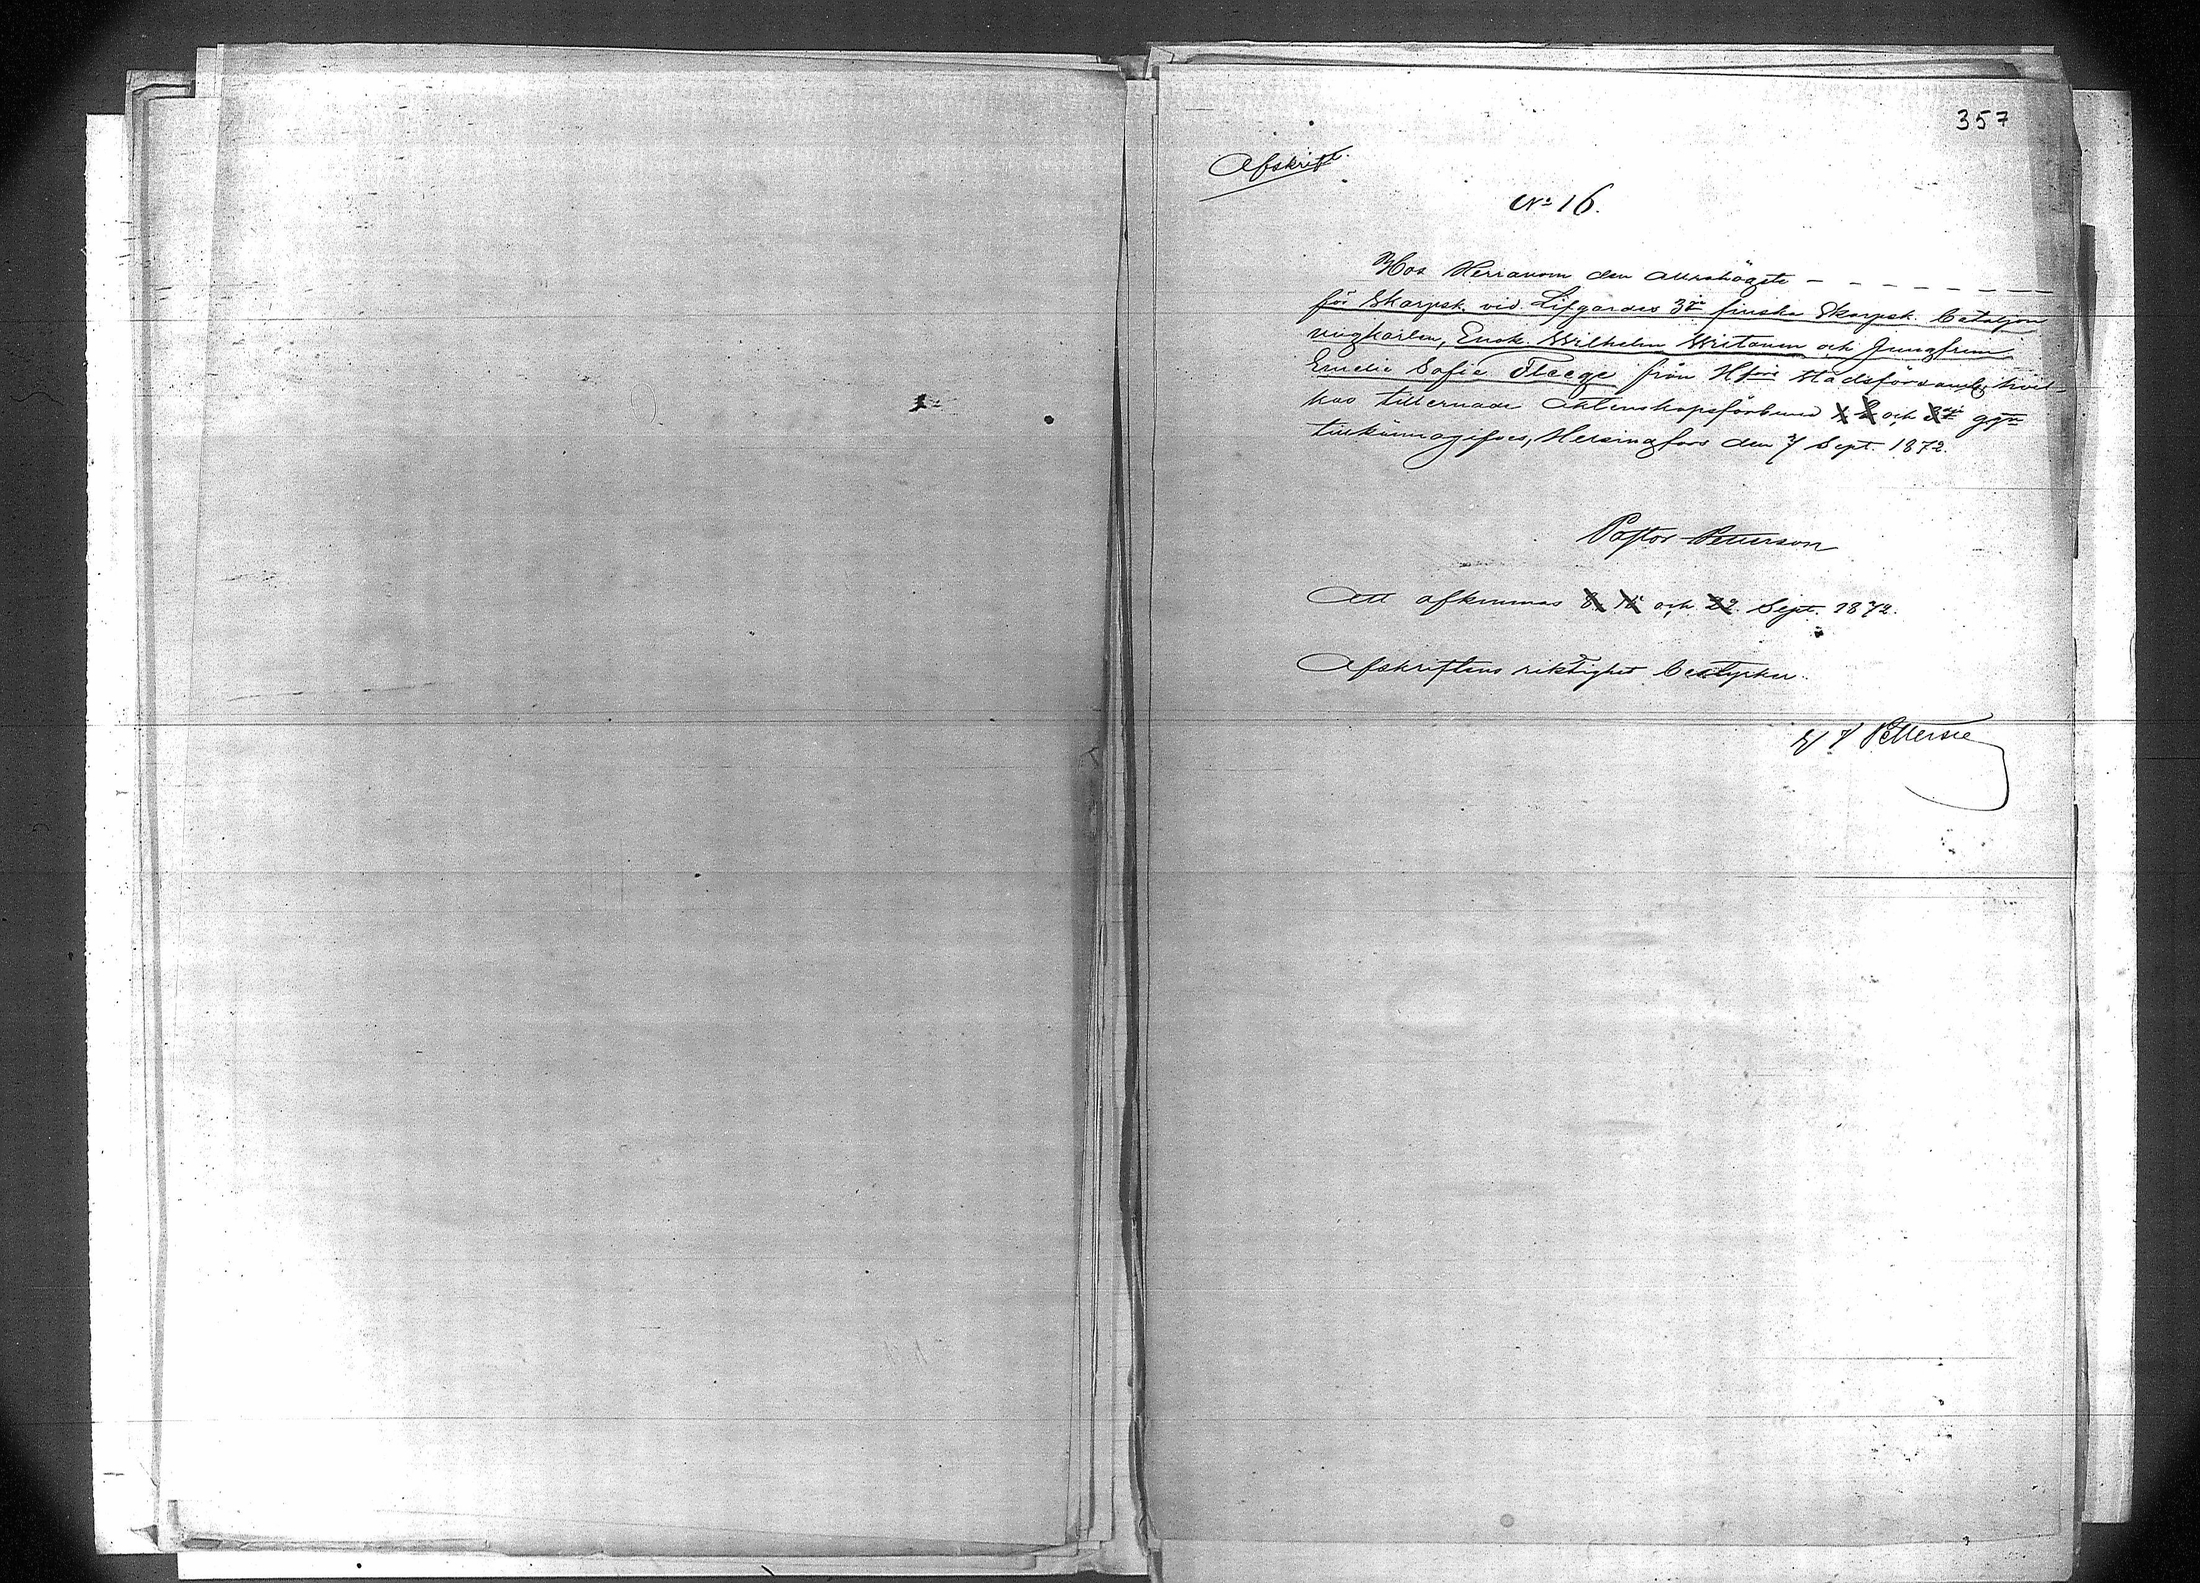 357
Afskrift.
No 16.
Hos Herranom den allrahögste — – – – – –
för Skarpsk. vid Lifgardes 3je finska Skarpsk. bataljon
ungkarlen, Enok Wilhelm Writanen och Jungfrun
Emelie Sofie Fleege från Hfors stadsförsaml. hvil-
kas tillernade äktenskapsförbund och 3je ggn
tillkännagifves, Helsingfors den 7 Sept. 1872.
Pastor Petterson
Att afkunnas 8, 15 och 22. Sept. 1872.
Afskriftens riktighet bestyrker.
Petterson